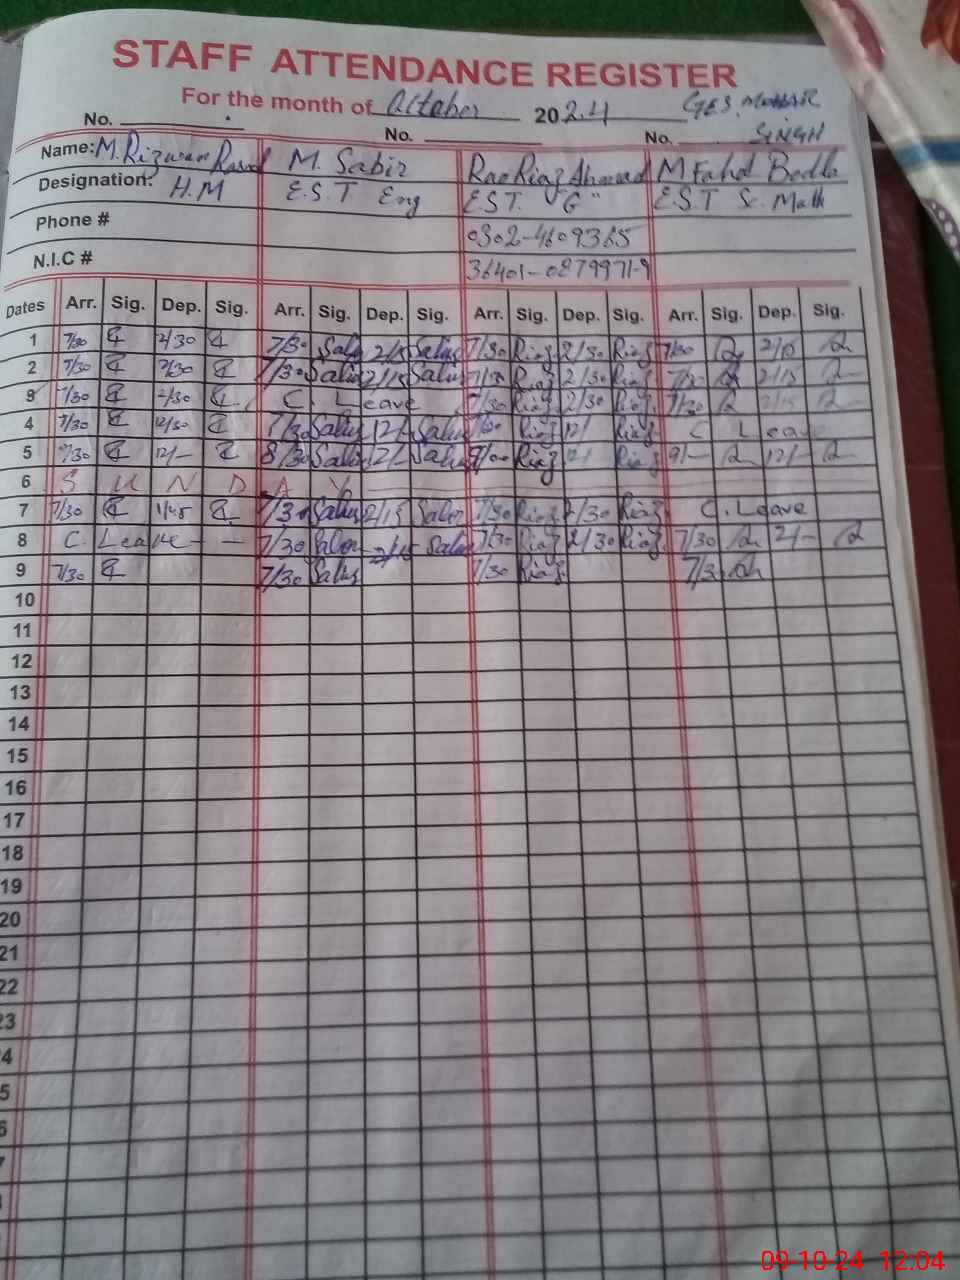 STAFF ATTENDANCE REGISTER
For the month of October 2024 GES. MOHAR SINGH
No. No. No.
Name: M. Rizwan Rasool M. Sabir Rao Riaz Ahmad M Fahd Bodla
Designation: H.M E.S.T Eng E.S.T. "G" E.S.T Sc. Math
Phone # 0302-4609365
N.I.C # 36401-0879971-9
Dates Arr. Sig. Dep. Sig. Arr. Sig. Dep. Sig. Arr. Sig. Dep. Sig. Arr. Sig. Dep. Sig.
1 7/30 2/30 7/30 2/15 7/30 Riaz 2/30 Riaz 7/30 2/15
2 7/30 2/30 7/30 2/15 7/30 Riaz 2/30 Riaz 7/30 2/15
3 7/30 2/30 C. Leave 7/30 Riaz 2/30 Riaz 7/30 2/15
4 7/30 12/30 7/30 12/- 7/30 Riaz 12/ Riaz C Leave
5 7/30 12/- 8/30 12/- Riaz 12/ Riaz 9/- 12/-
6 SUNDAY
7 7/30 1/45 7/30 2/15 7/30 Riaz 2/30 Riaz C. Leave
8 C. Leave - - 7/30 2/15 7/30 Riaz 2/30 Riaz 7/30 2/-
9 7/30 7/30 7/30 Riaz 7/30
10
11
12
13
14
15
16
17
18
19
20
21
22
23
4
5
6
7
09-10-24 12:04